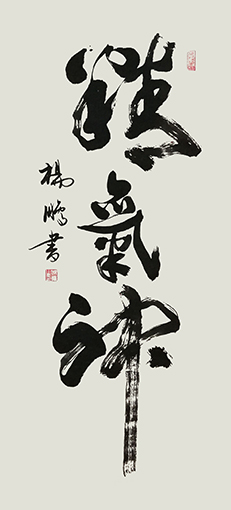 精氣神
楊鵬書